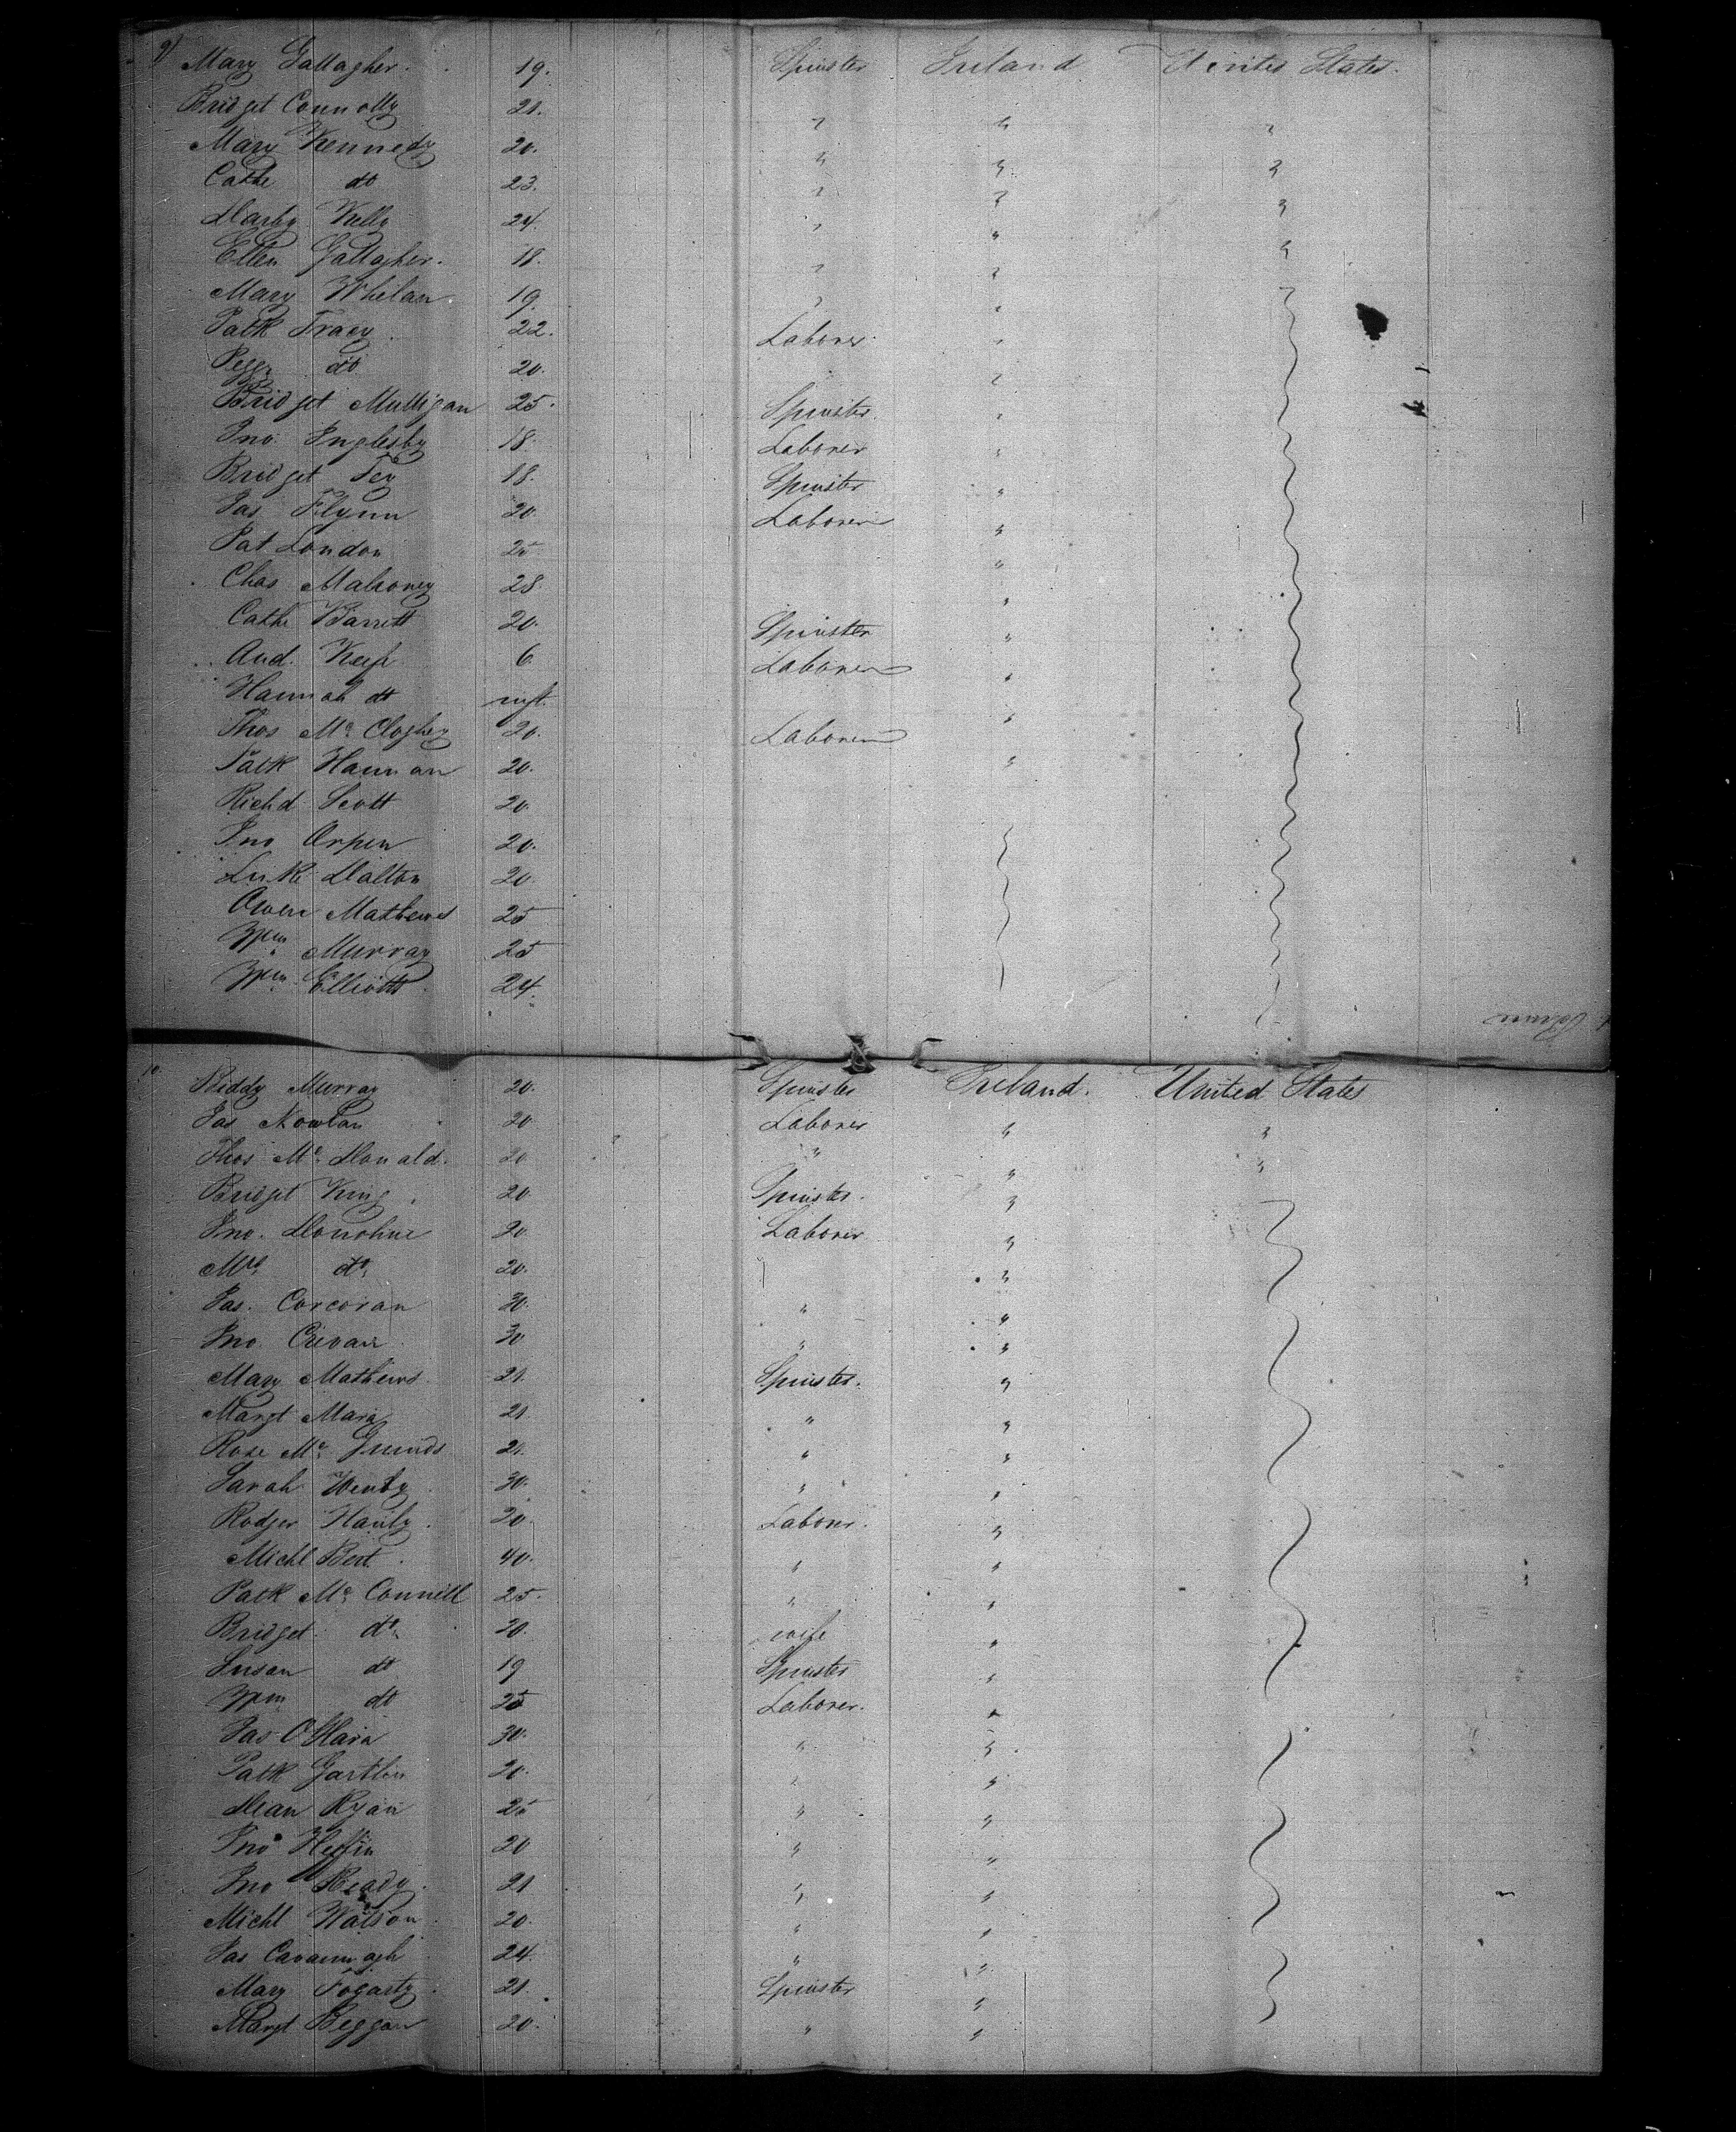 9) Mary Gallagher. 19. Spinster Ireland United States.
Bridget Connolly 21. " " "
Mary Kennedy 20. " " "
Cathe do 23. " " "
Darby Kelly 24. " " "
Ellen Gallagher. 18. " "
Mary Whelan 19. " "
Patk Tracy 22. Laborer "
Peggy do 20. "
Bridget Mulligan 25. Spinster "
Jno. Inglesby 18. Laborer "
Bridget 18. Spinster "
Jas Flynn 20. Laborer "
Pat London 25 "
Chas Mahoney 28 "
Cathe Barrett 20. Spinster "
And. Keefe 6 Laborer "
Hannah do "
Thos Mc Cloghey 20. Laborer "
Patk Hannan 20.
Richd Scott 20.
Jno Orpen 20.
Luke Dalton 20.
Owen Mathews 25
Wm Murray 25
Wm Elliott 24.
10. Biddy Murray 20. Spinster Ireland. United States
Jas Nowlan 20. Laborer " "
Thos Mc Donald. 20 " " "
Bridget King. 20. Spinster. "
Jno. Donohue 20 Laborer "
Mrs do 20. "
Jas. Corcoran 30. " "
Jno. 30 " "
Mary Mathews. 21. Spinster. "
Margt 21. " "
Rose Mc 21. " "
Sarah 30. " "
Rodger 20. Laborer. "
Michl Bert. 40. " "
Patk Mc Connell 25. " "
Bridget do 20. wife "
Susan do 19 Spinster "
Wm do 25 Laborer. "
Jas O'Hara 30. " "
Patk Gartlin 20. " "
Ryan 25 " "
Jno Heffin 20 " "
Jno Ready. 21 " "
Michl Watson 20. " "
Jas Cavannagh 24. " "
Mary Fogarty. 21. Spinster "
Margt Beggan 20. " "